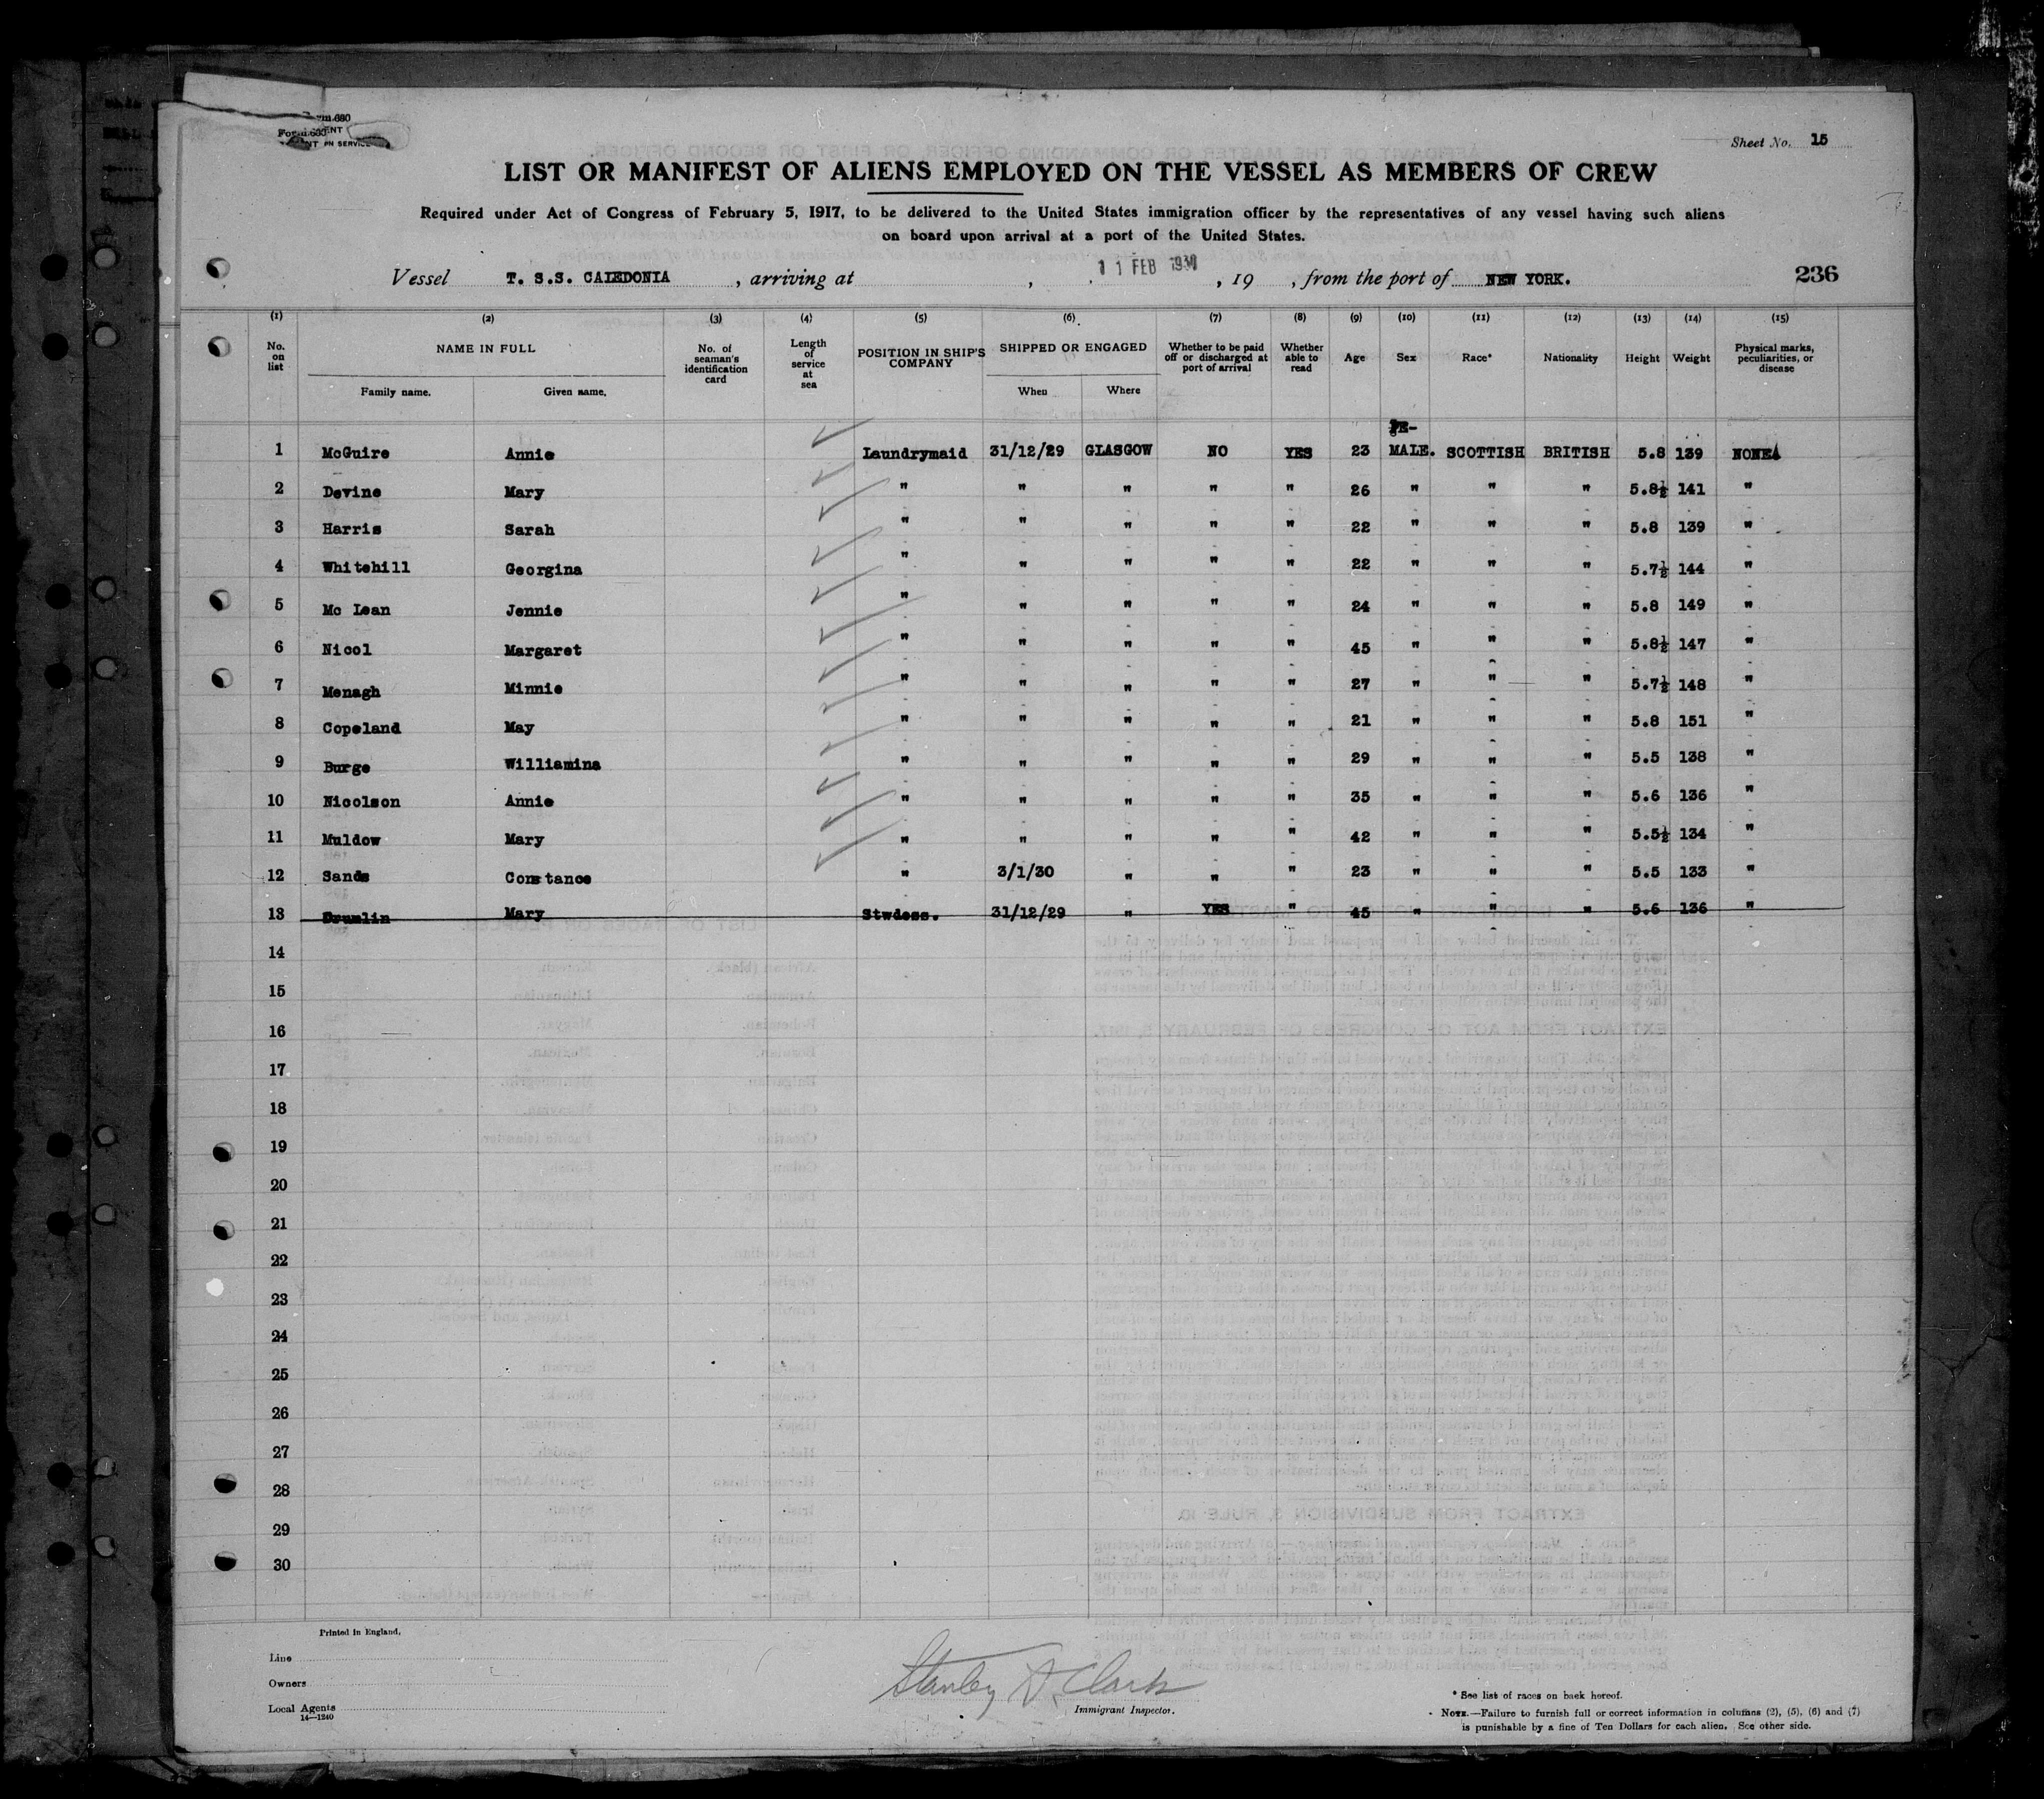 Form 680
Sheet No. 15
LIST OR MANIFEST OF ALIENS EMPLOYED ON THE VESSEL AS MEMBERS OF CREW
Required under Act of Congress of February 5, 1917, to be delivered to the United States immigration officer by the representatives of any vessel having such aliens
on board upon arrival at a port of the United States.
Vessel T. S.S. CALEDONIA , arriving at , 11 FEB 1930 , 19 , from the port of NEW YORK. 236
(1) (2) (3) (4) (5) (6) (7) (8) (9) (10) (11) (12) (13) (14) (15)
No. on list NAME IN FULL Family name. Given name. No. of seaman's identification card Length of service at sea POSITION IN SHIP'S COMPANY SHIPPED OR ENGAGED When Where Whether to be paid off or discharged at port of arrival Whether able to read Age Sex Race* Nationality Height Weight Physical marks, peculiarities, or disease
1 McGuire Annie Laundrymaid 31/12/29 GLASGOW NO YES 23 FE-MALE. SCOTTISH BRITISH 5.8 139 NONE
2 Devine Mary " " " " " 26 " " " 5.8½ 141 "
3 Harris Sarah " " " " " 22 " " " 5.8 139 "
4 Whitehill Georgina " " " " " 22 " " " 5.7½ 144 "
5 Mc Lean Jennie " " " " " 24 " " " 5.8 149 "
6 Nicol Margaret " " " " " 45 " " " 5.8½ 147 "
7 Menagh Minnie " " " " " 27 " " " 5.7½ 148 "
8 Copeland May " " " " " 21 " " " 5.8 151 "
9 Burge Williamina " " " " " 29 " " " 5.5 138 "
10 Nicolson Annie " " " " " 35 " " " 5.6 136 "
11 Muldow Mary " " " " " 42 " " " 5.5½ 134 "
12 Sands Constance " 3/1/30 " " " 23 " " " 5.5 133 "
13 Mary Stwdess. 31/12/29 " YES " 45 " " " 5.6 136 "
14
15
16
17
18
19
20
21
22
23
24
25
26
27
28
29
30
Printed in England.
Line
Owners
Local Agents
14—1240
Stanley D. Clark
Immigrant Inspector.
* See list of races on back hereof.
NOTE.—Failure to furnish full or correct information in columns (2), (5), (6) and (7)
is punishable by a fine of Ten Dollars for each alien. See other side.